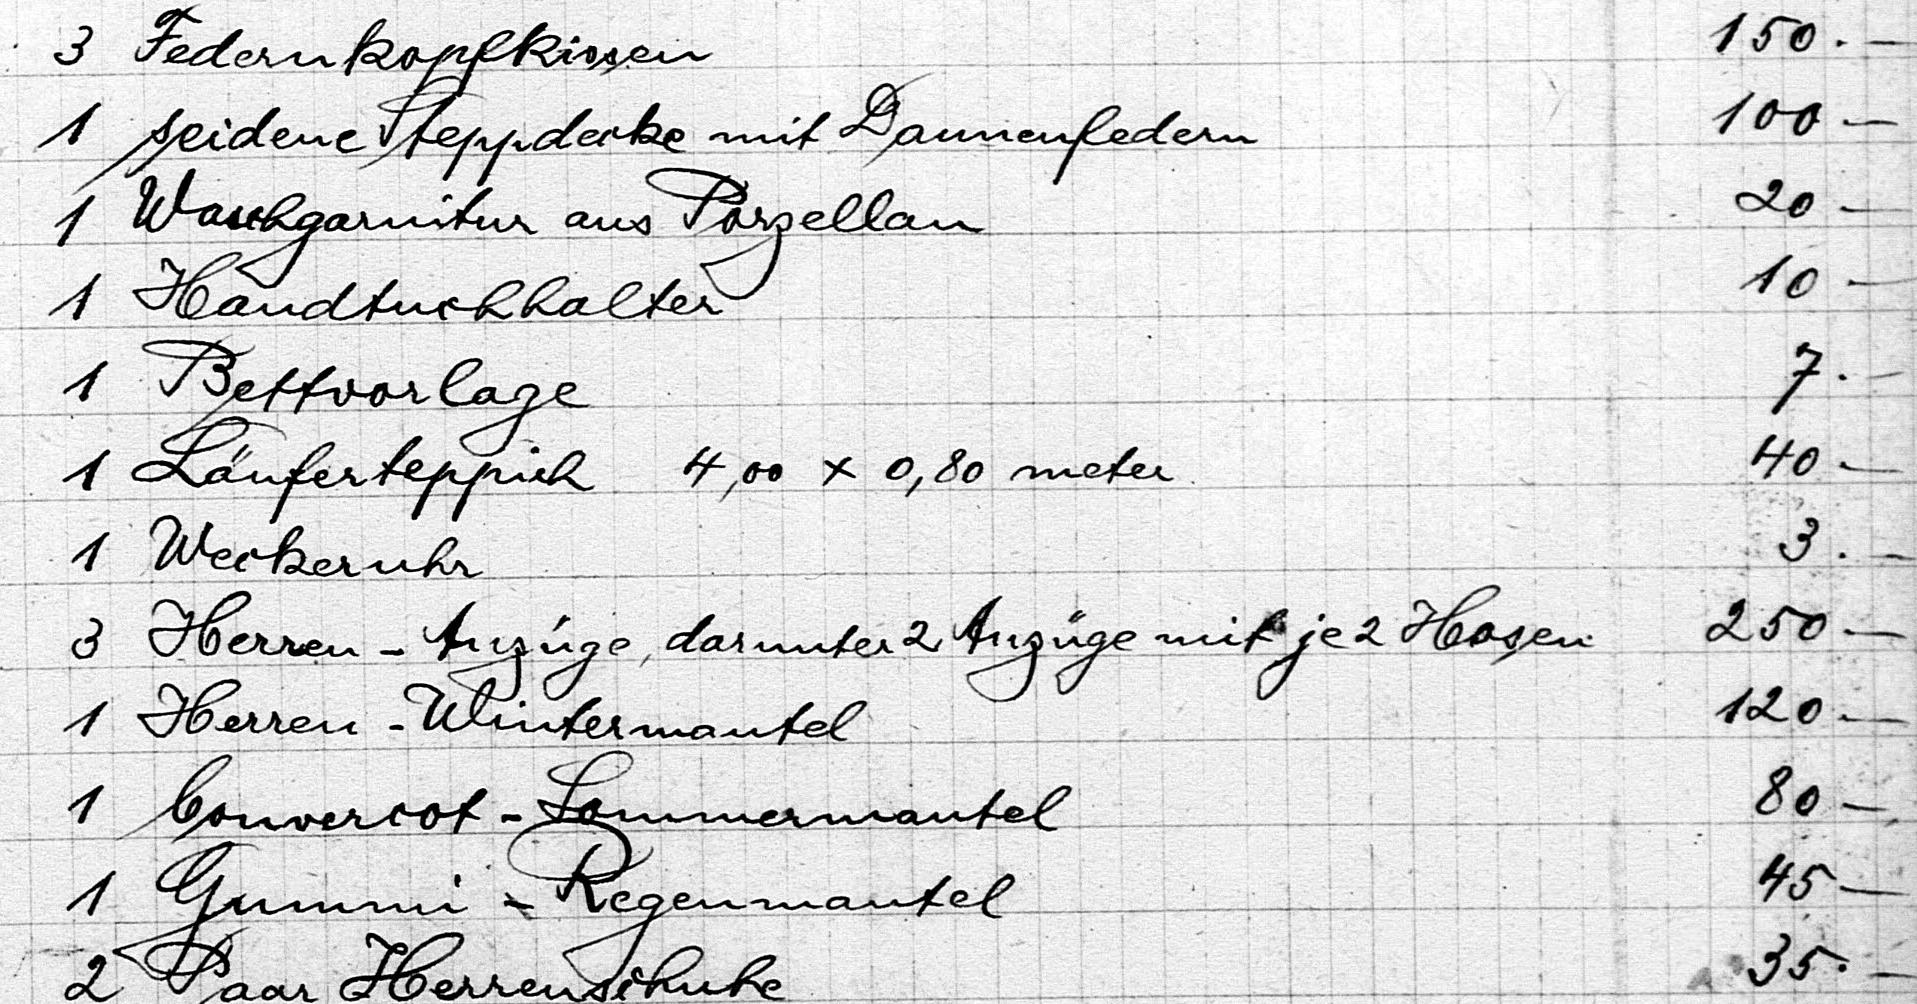 3 Federnkopfkissen 150.—
1 seidene Steppdecke mit Daunenfedern 100—
1 Waschgarnitur aus Porzellan 20—
1 Handtuchhalter 10—
1 Bettvorlage 7.—
1 Läuferteppich 4,00 x 0,80 meter 40.—
1 Weckeruhr 3.—
3 Herren-Anzüge, darunter 2 Anzüge mit je 2 Hosen 250—
1 Herren-Wintermantel 120.—
1 Convercot-Sommermantel 80—
1 Gummi-Regenmantel 45—
2 Paar Herrenschuhe 35.—